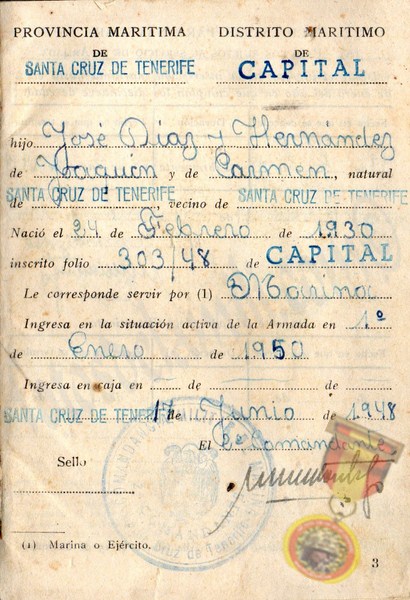 PROVINCIA MARITIMA DISTRITO MARITIMO
DE DE
SANTA CRUZ DE TENERIFE CAPITAL
hijo José Díaz y Hernández
de Joaquín y de Carmen, natural
SANTA CRUZ DE TENERIFE SANTA CRUZ DE TENERIFE
de, vecino de
Nació el 24 de Febrero de 1930
inscrito folio 303/48 de CAPITAL
Le corresponde servir por (1) Marina
Ingresa en la situación activa de la Armada en 1º
de Enero de 1950
Ingresa en caja en de de
SANTA CRUZ DE TENERIFE 17 de Junio de 1948
El 2º Comandante,
Sello
(1) Marina o Ejército.
3